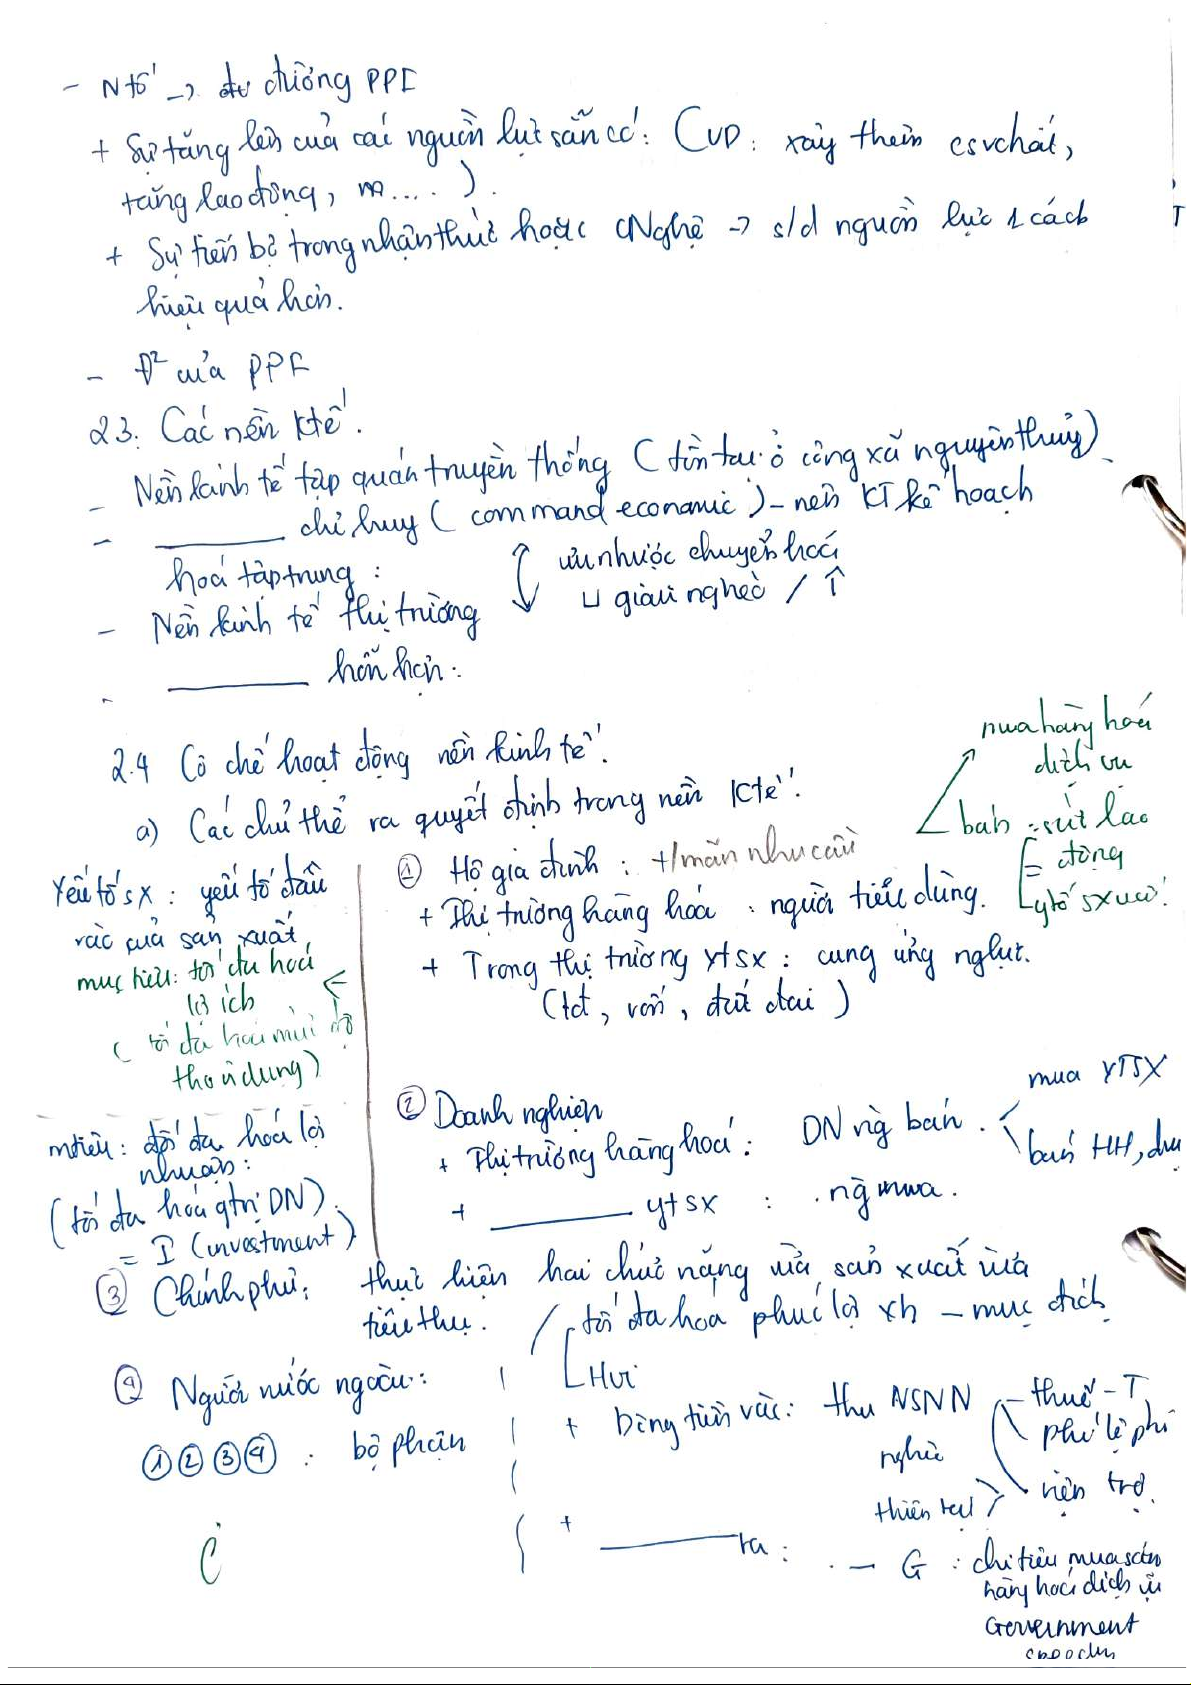 - N tố → đư đường PPF
+ Sự tăng lên của các nguồn lực sẵn có: (VD: xây thêm csvchất,
tăng lao động, m....).
+ Sự tiến bộ trong nhận thức hoặc CNghệ → s/d nguồn lực 1 cách
hiệu quả hơn.
- Đ² của PPF
2.3. Các nền Ktế.
- Nền kinh tế tập quán truyền thống (tồn tại ở công xã nguyên thuỷ)
- ______ chỉ huy (command economic) - nền KT kế hoạch
hoá tập trung: ưu nhược chuyển hoá
↕ giàu nghèo /
- Nền kinh tế thị trường
- ______ hỗn hợp:
2.4 Cơ chế hoạt động nền kinh tế.
a) Các chủ thể ra quyết định trong nền Ktế.
mua hàng hoá
dịch vụ
bán : sức lao
động
ytố sx
① Hộ gia đình : t/mãn nhu cầu
+ Thị trường hàng hóa : người tiêu dùng.
+ Trong thị trường ytsx : cung ứng nglực.
(lđ, vốn, đất đai)
Yếu tố sx : yếu tố đầu
vào của sản xuất
mục tiêu: tối đa hoá
lợi ích
( tối đa hoá mức độ
thoả dụng)
② Doanh nghiệp
+ Thị trường hàng hoá : DN ng bán.
mua YTSX
bán HH, dvụ
+ ______ ytsx : ng mua.
mtiêu: tối đa hoá lợi
nhuận:
(tối đa hóa gtrị DN).
= I (investment)
③ Chính phủ: thực hiện hai chức năng vừa sản xuất vừa
tiêu thụ.
tối đa hoá phúc lợi xh - mục đích
④ Người nước ngoài:
①②③④ : bộ phận
+ Dòng tiền vào: thu NSNN
- thuế - T
phí lệ phí
viện trợ.
nghèo
thiên tai
+ ______ ra : - G : chi tiêu mua sắm
hàng hoá dịch vụ
Government